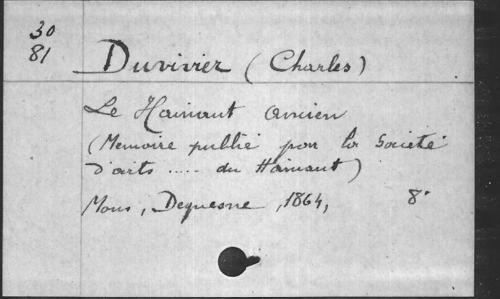 30
81
Duvivier (Charles)
Le Hainaut ancien
(Memoire publié par la Société
d'arts ..... du Hainaut)
Mons, Dequesne, 1864, 8°